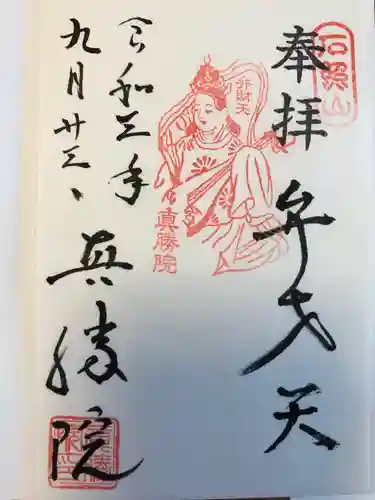 石照山
奉拝
弁才天
弁財天
真勝院
令和三年
九月廿三日
真勝院